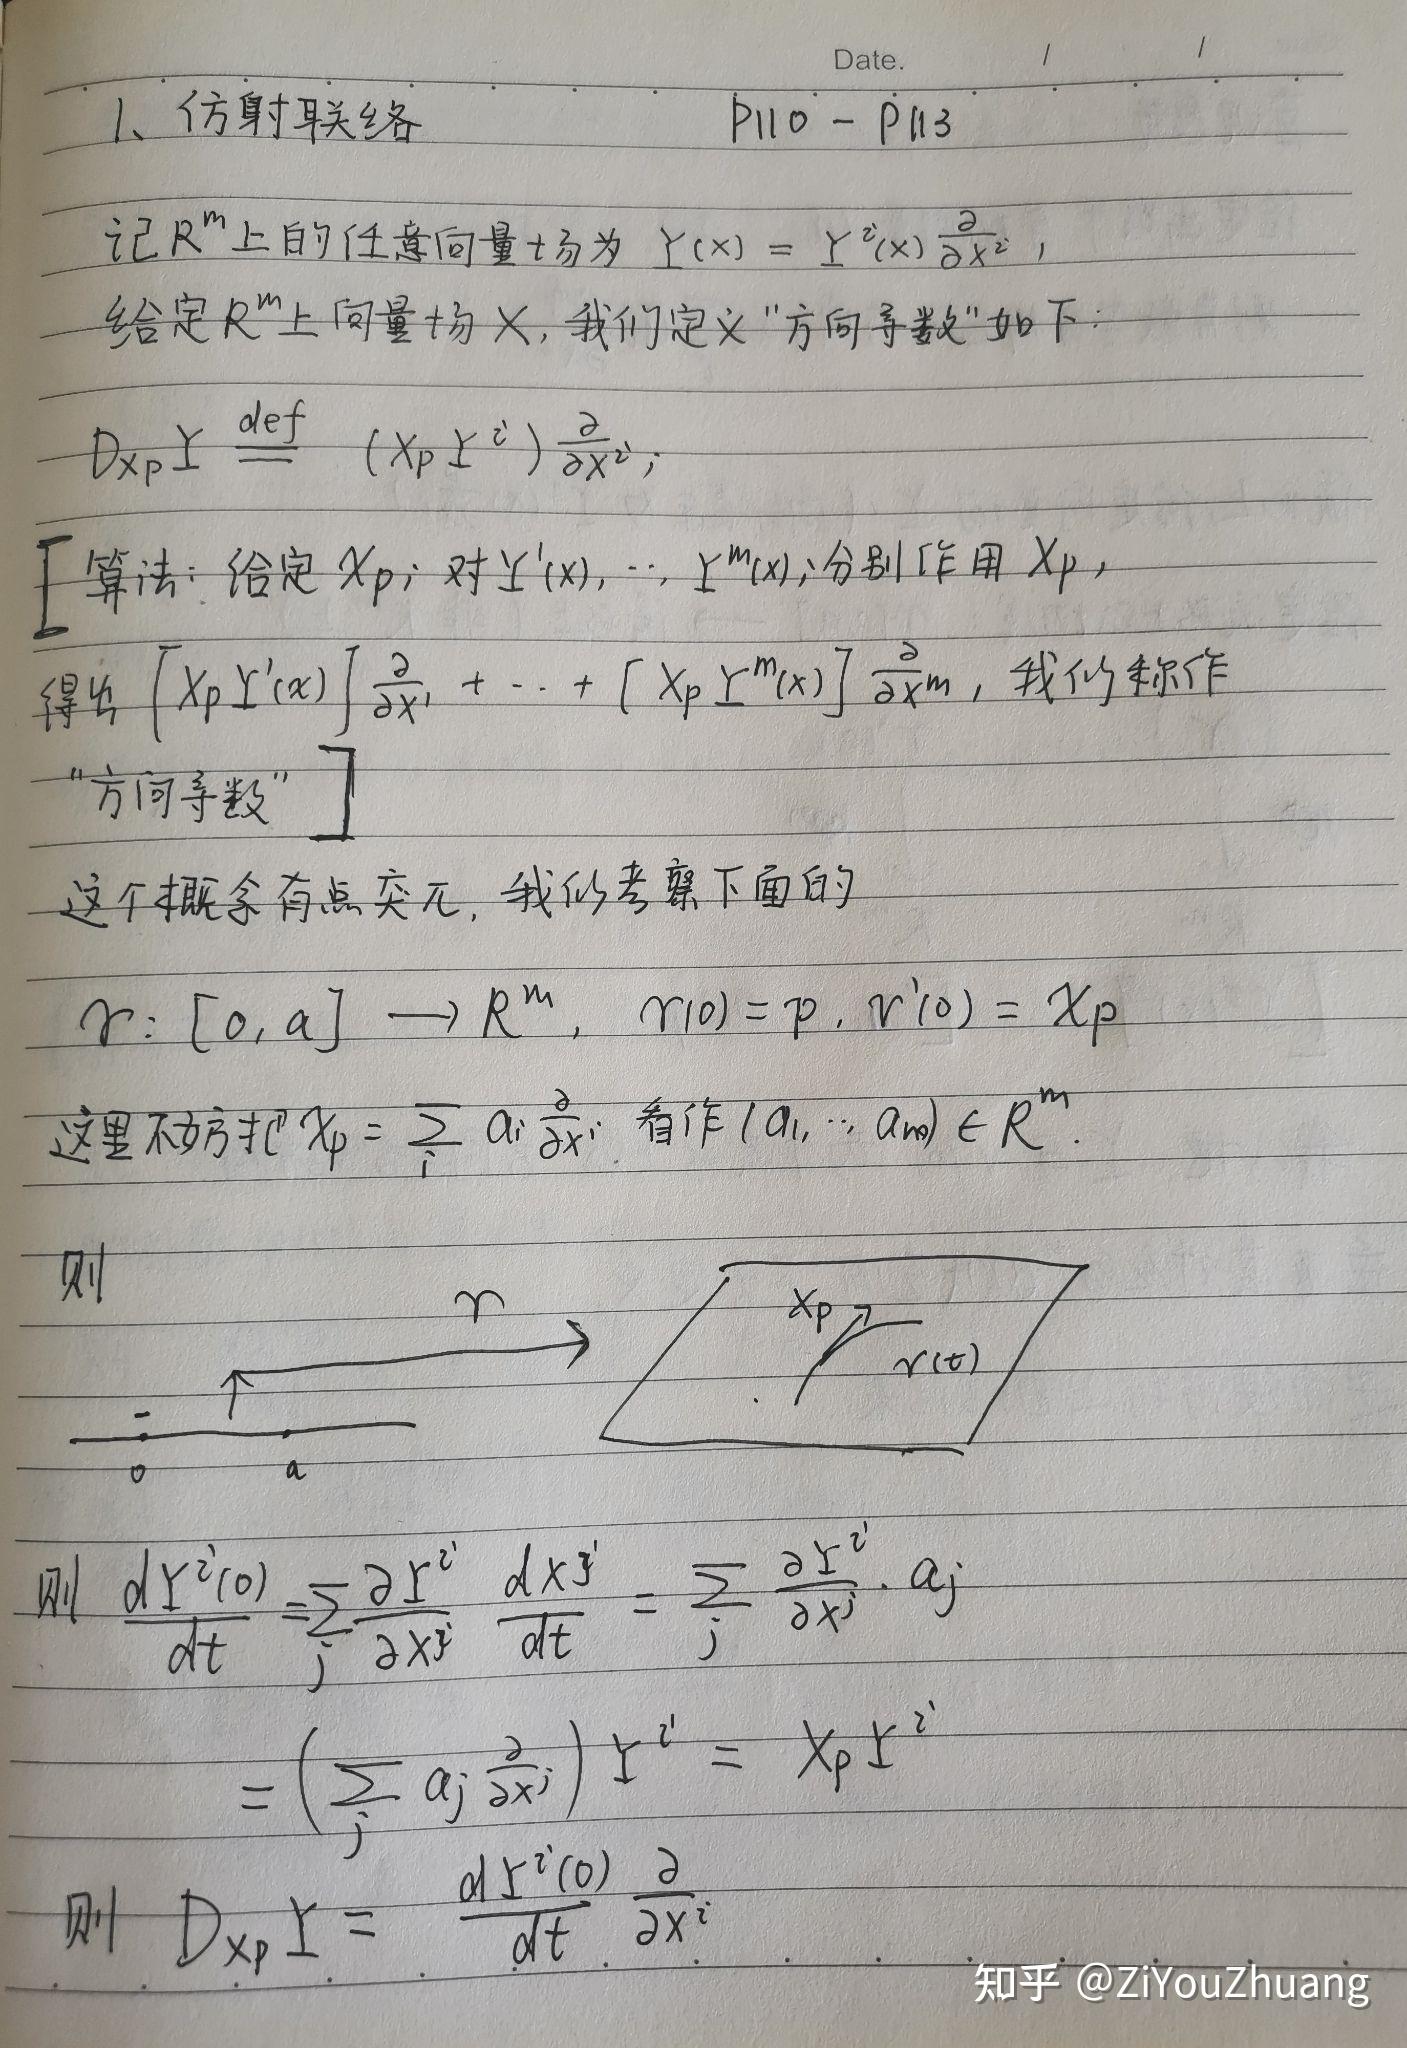 Date. / /
1、仿射联络 P110 - P113
记 R^m 上的任意向量场为 Y(x) = Y^i(x) ∂/∂x^i ,
给定 R^m 上向量场 X, 我们定义"方向导数"如下:
D_{X_p} Y \overset{def}{=} (X_p Y^i) ∂/∂x^i ;
[算法: 给定 X_p; 对 Y^1(x), ..., Y^m(x); 分别作用 X_p,
得出 [X_p Y^1(x)] ∂/∂x^1 + ... + [X_p Y^m(x)] ∂/∂x^m, 我们称作
"方向导数"]
这个概念有点突兀, 我们考察下面的
r: [0, a] → R^m, r(0) = p, r'(0) = X_p
这里不妨把 X_p = ∑_i a_i ∂/∂x^i 看作 (a_1, ..., a_m) ∈ R^m.
则
r
X_p
r(t)
0 a
则 dY^i(0)/dt = ∑_j ∂Y^i/∂x^j dx^j/dt = ∑_j ∂Y^i/∂x^j · a_j
= (∑_j a_j ∂/∂x^j) Y^i = X_p Y^i
则 D_{X_p} Y = dY^i(0)/dt ∂/∂x^i
知乎 @ZiYouZhuang